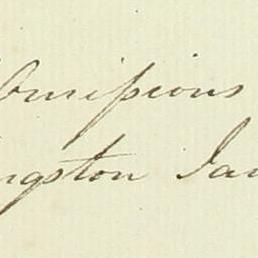 Omiſsions
ngston Jan